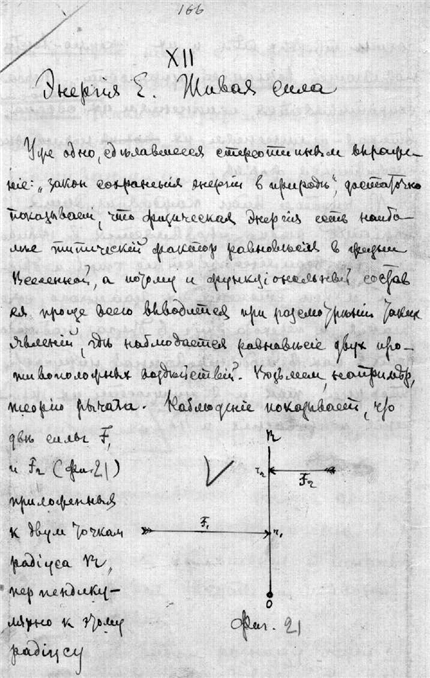 166
XII
Энергiя E. Живая сила
Уже одно, сдѣлавшееся стереотипным выраже-
нiе: „закон сохраненiя энергiи в природѣ", достаточно
показывает, что физическая энергiя есть наибо-
лѣе типическiй фактор равновѣсiя в жизни
Вселенной, а потому и функцiональный состав
ея проще всего выводится при разсмотрѣнiи таких
явленiй, гдѣ наблюдается равновѣсiе двух про-
тивоположных воздѣйствiй. Возьмем, например,
теорiю рычага. Наблюденiе показывает, что
двѣ силы F₁
и F₂ (фиг. 21)
приложенныя
к двум точкам
радiуса R,
перпендику-
лярно к этому
радiусу
R
r₂
F₂
F₁
r₁
O
Фиг. 21